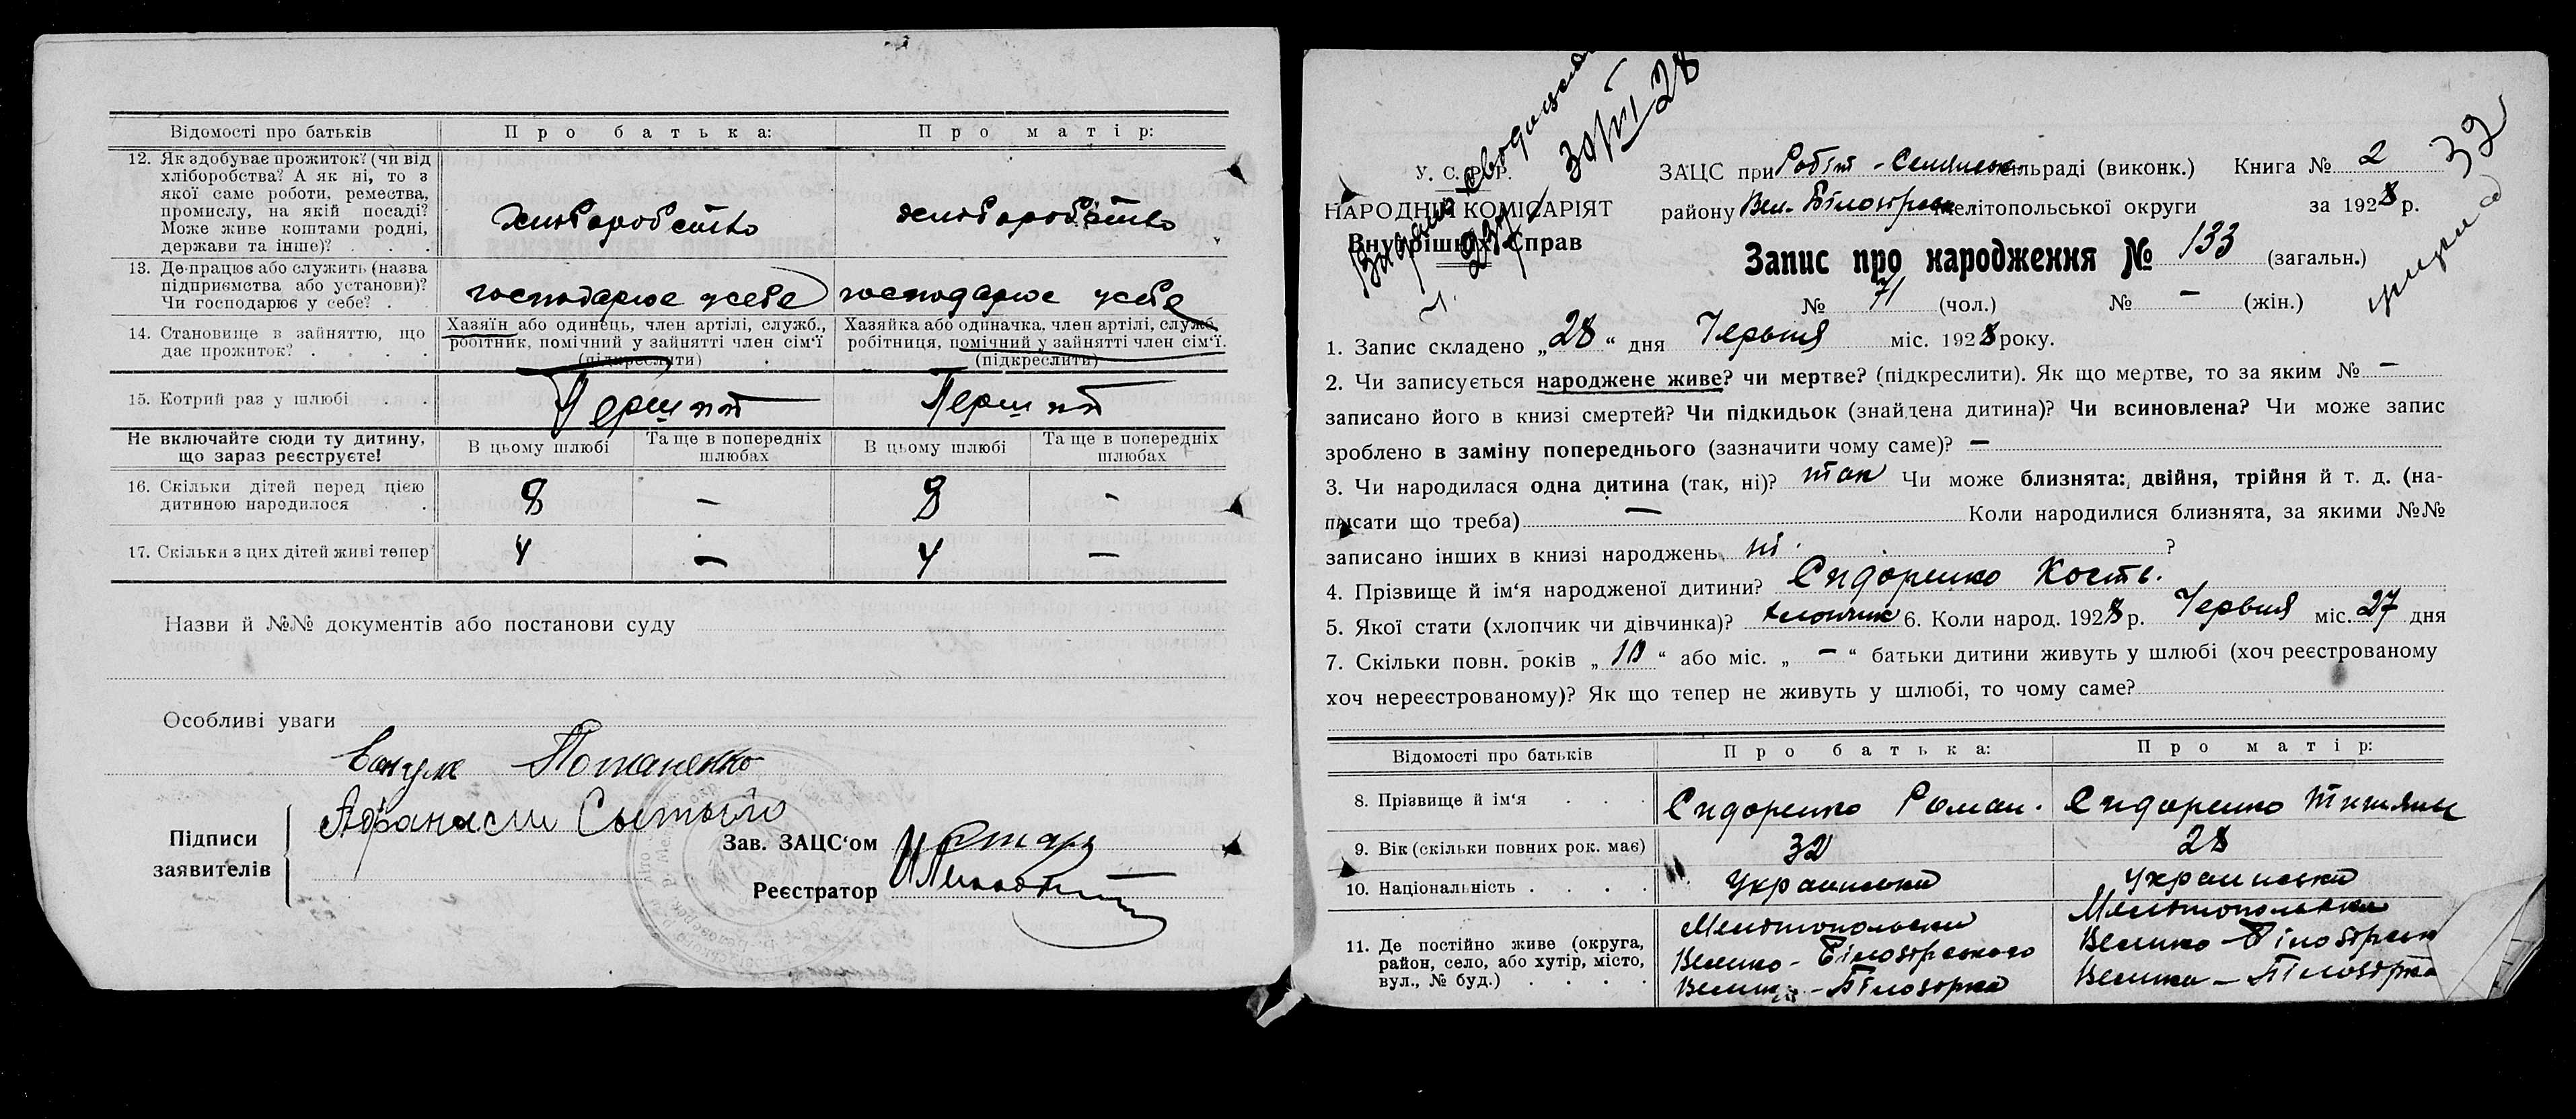 Відомості про батьків Про батька: Про матір:
12. Як здобуває прожиток? (чи від
хліборобства? А як ні, то з
якої саме роботи, ремества,
промислу, на якій посаді?
Може живе коштами родні,
держави та інше)? . . .
хліборобство хліборобство
13. Де працює або служить (назва
підприємства або установи)?
Чи господарює у себе? .
господарює у себе господарює у себе
14. Становище в зайняттю, що
дає прожиток? . . . .
Хазяїн або одинець, член артілі, служб.,
робітник, помічний у зайнятті член сім'ї
(підкреслити)
Хазяйка або одиначка, член артілі, служб.
робітниця, помічний у зайнятті член сім'ї.
(підкреслити)
15. Котрий раз у шлюбі . . Перший Перший
Не включайте сюди ту дитину,
що зараз реєструєте!
В цьому шлюбі Та ще в попередніх шлюбах В цьому шлюбі Та ще в попередніх шлюбах
16. Скільки дітей перед цією
дитиною народилося . . 8 – 8 –
17. Скільки з цих дітей живі тепер 4 – 4 –
Назви й №№ документів або постанови суду
Особливі уваги
Потапенко
Афанасий Сытыло
Підписи
заявителів
Зав. ЗАЦС'ом
Реєстратор
30/VI 28
32
У. С. Р. Р.
НАРОДНІЙ КОМІСАРІЯТ
Внутрішніх Справ
ЗАЦС при Робіт - Селянськ сільраді (виконк.) Книга № 2
району Вел. Білозірськ Мелітопольської округи за 1928 р.
Запис про народження № 133 (загальн.)
№ 71 (чол.) № – (жін.)
1. Запис складено „28“ дня Червня міс. 1928 року.
2. Чи записується народжене живе? чи мертве? (підкреслити). Як що мертве, то за яким № –
записано його в книзі смертей? Чи підкидьок (знайдена дитина)? Чи всиновлена? Чи може запис
зроблено в заміну попереднього (зазначити чому саме)? –
3. Чи народилася одна дитина (так, ні)? так Чи може близнята: двійня, трійня й т. д. (на-
писати що треба) – Коли народилися близнята, за якими №№
записано інших в книзі народжень ні . ?
4. Прізвище й ім'я народженої дитини? Сидоренко Кость.
5. Якої стати (хлопчик чи дівчинка)? хлопчик 6. Коли народ. 1928 р. Червня міс. 27 дня
7. Скільки повн. років „10“ або міс. „–“ батьки дитини живуть у шлюбі (хоч реєстрованому
хоч нереєстрованому)? Як що тепер не живуть у шлюбі, то чому саме?
Відомості про батьків Про батька: Про матір:
8. Прізвище й ім'я . . . Сидоренко Роман. Сидоренко Титяна
9. Вік (скільки повних рок. має) 32 28
10. Національність . . . . Українська Українська
11. Де постійно живе (округа,
район, село, або хутір, місто,
вул., № буд.) . . . .
Мелітопольська Мелітопольська
Велико-Білозірського Велико-Білозірськ
Велика-Білозірка Велика-Білозірка